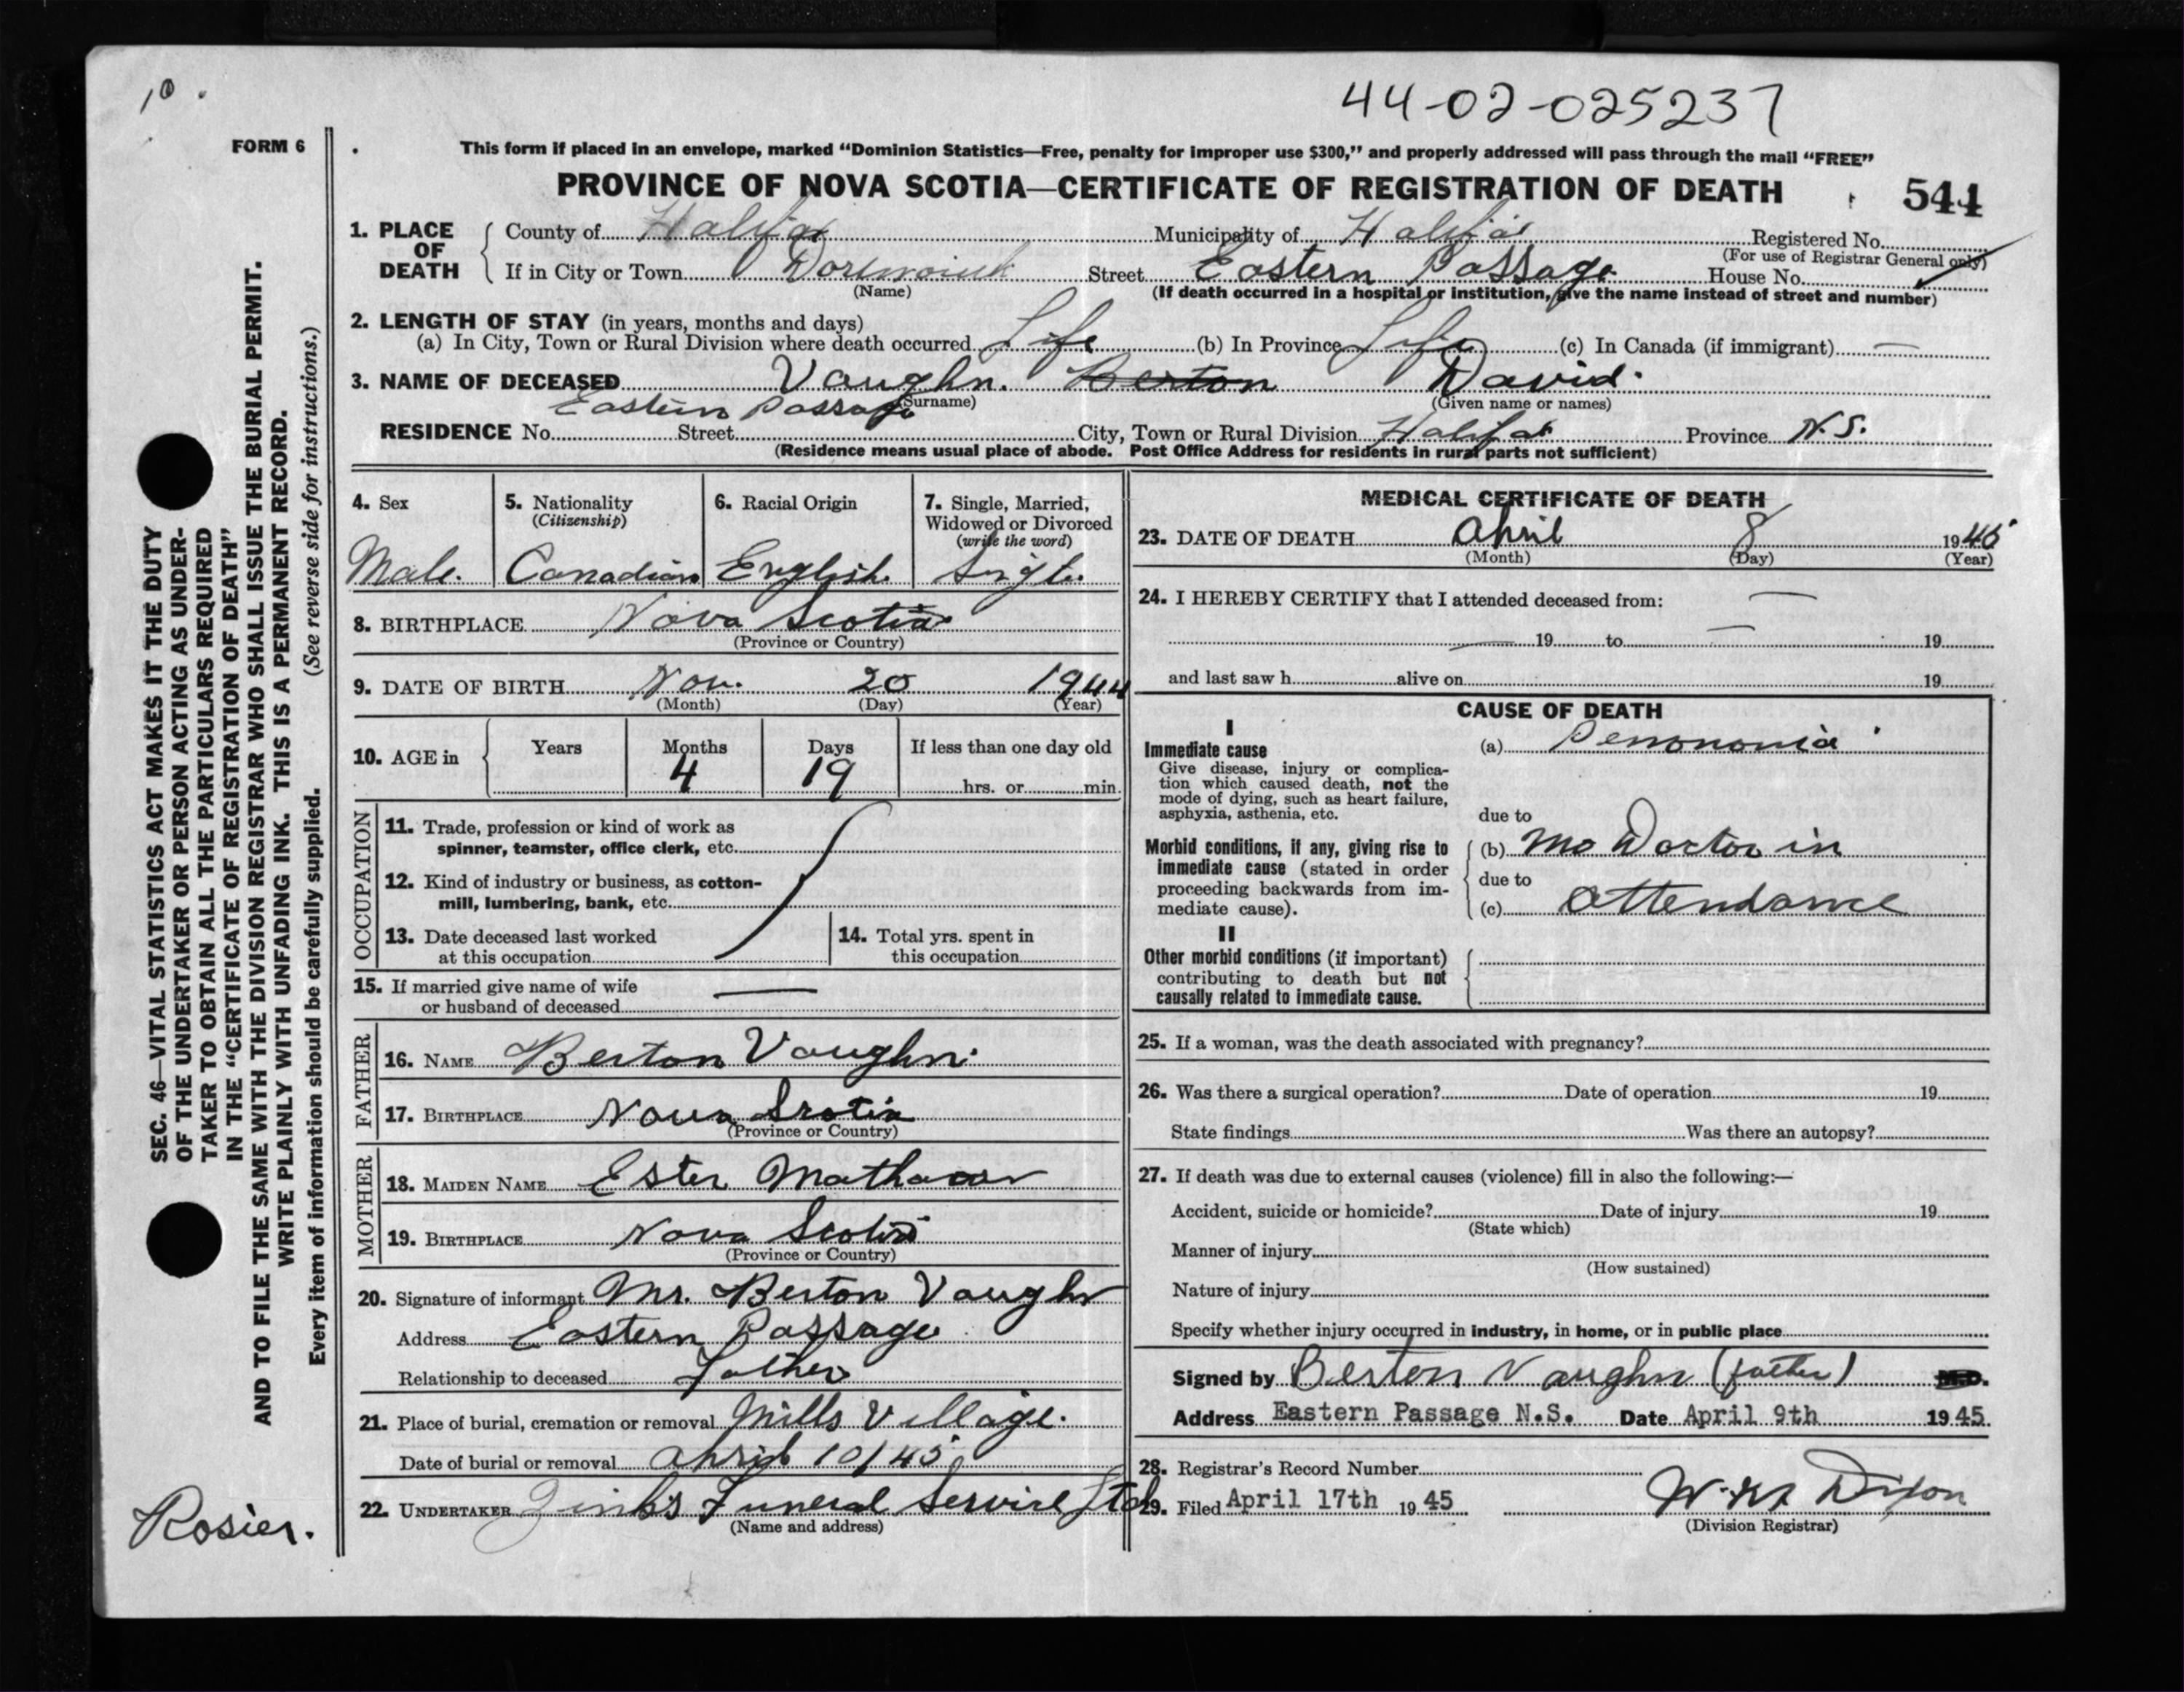 10.
44-02-025237
FORM 6
This form if placed in an envelope, marked “Dominion Statistics—Free, penalty for improper use $300,” and properly addressed will pass through the mail “FREE”
PROVINCE OF NOVA SCOTIA—CERTIFICATE OF REGISTRATION OF DEATH 544
SEC. 46—VITAL STATISTICS ACT MAKES IT THE DUTY
OF THE UNDERTAKER OR PERSON ACTING AS UNDER-
TAKER TO OBTAIN ALL THE PARTICULARS REQUIRED
IN THE “CERTIFICATE OF REGISTRATION OF DEATH”
AND TO FILE THE SAME WITH THE DIVISION REGISTRAR WHO SHALL ISSUE THE BURIAL PERMIT.
WRITE PLAINLY WITH UNFADING INK. THIS IS A PERMANENT RECORD.
Every item of information should be carefully supplied. (See reverse side for instructions.)
Rosier.
1. PLACE OF DEATH County of Halifax Municipality of Halifax Registered No.
(For use of Registrar General only)
If in City or Town Dartmouth Street Eastern Passage House No.
(Name) (If death occurred in a hospital or institution, give the name instead of street and number)
2. LENGTH OF STAY (in years, months and days)
(a) In City, Town or Rural Division where death occurred Life (b) In Province Life (c) In Canada (if immigrant) —
3. NAME OF DECEASED Vaughn. Berton David.
(Surname) (Given name or names)
Eastern Passage
RESIDENCE No. Street City, Town or Rural Division Halifax Province N.S.
(Residence means usual place of abode. Post Office Address for residents in rural parts not sufficient)
4. Sex
Male.
5. Nationality
(Citizenship)
Canadian
6. Racial Origin
English
7. Single, Married,
Widowed or Divorced
(write the word)
Single
8. BIRTHPLACE Nova Scotia
(Province or Country)
9. DATE OF BIRTH Nov. 20 1944
(Month) (Day) (Year)
10. AGE in Years Months Days If less than one day old
4 19 hrs. or min.
OCCUPATION
11. Trade, profession or kind of work as
spinner, teamster, office clerk, etc.
12. Kind of industry or business, as cotton-
mill, lumbering, bank, etc.
13. Date deceased last worked
at this occupation
14. Total yrs. spent in
this occupation
15. If married give name of wife
or husband of deceased —
FATHER
16. NAME Berton Vaughn.
17. BIRTHPLACE Nova Scotia
(Province or Country)
MOTHER
18. MAIDEN NAME Ester
19. BIRTHPLACE Nova Scotia
(Province or Country)
20. Signature of informant Mr. Berton Vaughn
Address Eastern Passage
Relationship to deceased Father
21. Place of burial, cremation or removal Mills Village.
Date of burial or removal April 10/45
22. UNDERTAKER Funeral Service Ltd
(Name and address)
MEDICAL CERTIFICATE OF DEATH
23. DATE OF DEATH April 8 1945
(Month) (Day) (Year)
24. I HEREBY CERTIFY that I attended deceased from: —
— 19 to — 19
and last saw h alive on 19
CAUSE OF DEATH
I
Immediate cause
Give disease, injury or complica-
tion which caused death, not the
mode of dying, such as heart failure,
asphyxia, asthenia, etc.
(a) Penonomia
due to
Morbid conditions, if any, giving rise to
immediate cause (stated in order
proceeding backwards from im-
mediate cause).
(b) No Doctor in
due to
(c) attendance
II
Other morbid conditions (if important)
contributing to death but not
causally related to immediate cause.
25. If a woman, was the death associated with pregnancy?
26. Was there a surgical operation? Date of operation 19
State findings Was there an autopsy?
27. If death was due to external causes (violence) fill in also the following:—
Accident, suicide or homicide? Date of injury 19
(State which)
Manner of injury
(How sustained)
Nature of injury
Specify whether injury occurred in industry, in home, or in public place
Signed by Berton Vaughn (father) M.D.
Address Eastern Passage N.S. Date April 9th 1945
28. Registrar's Record Number
29. Filed April 17th 1945 Dixon
(Division Registrar)